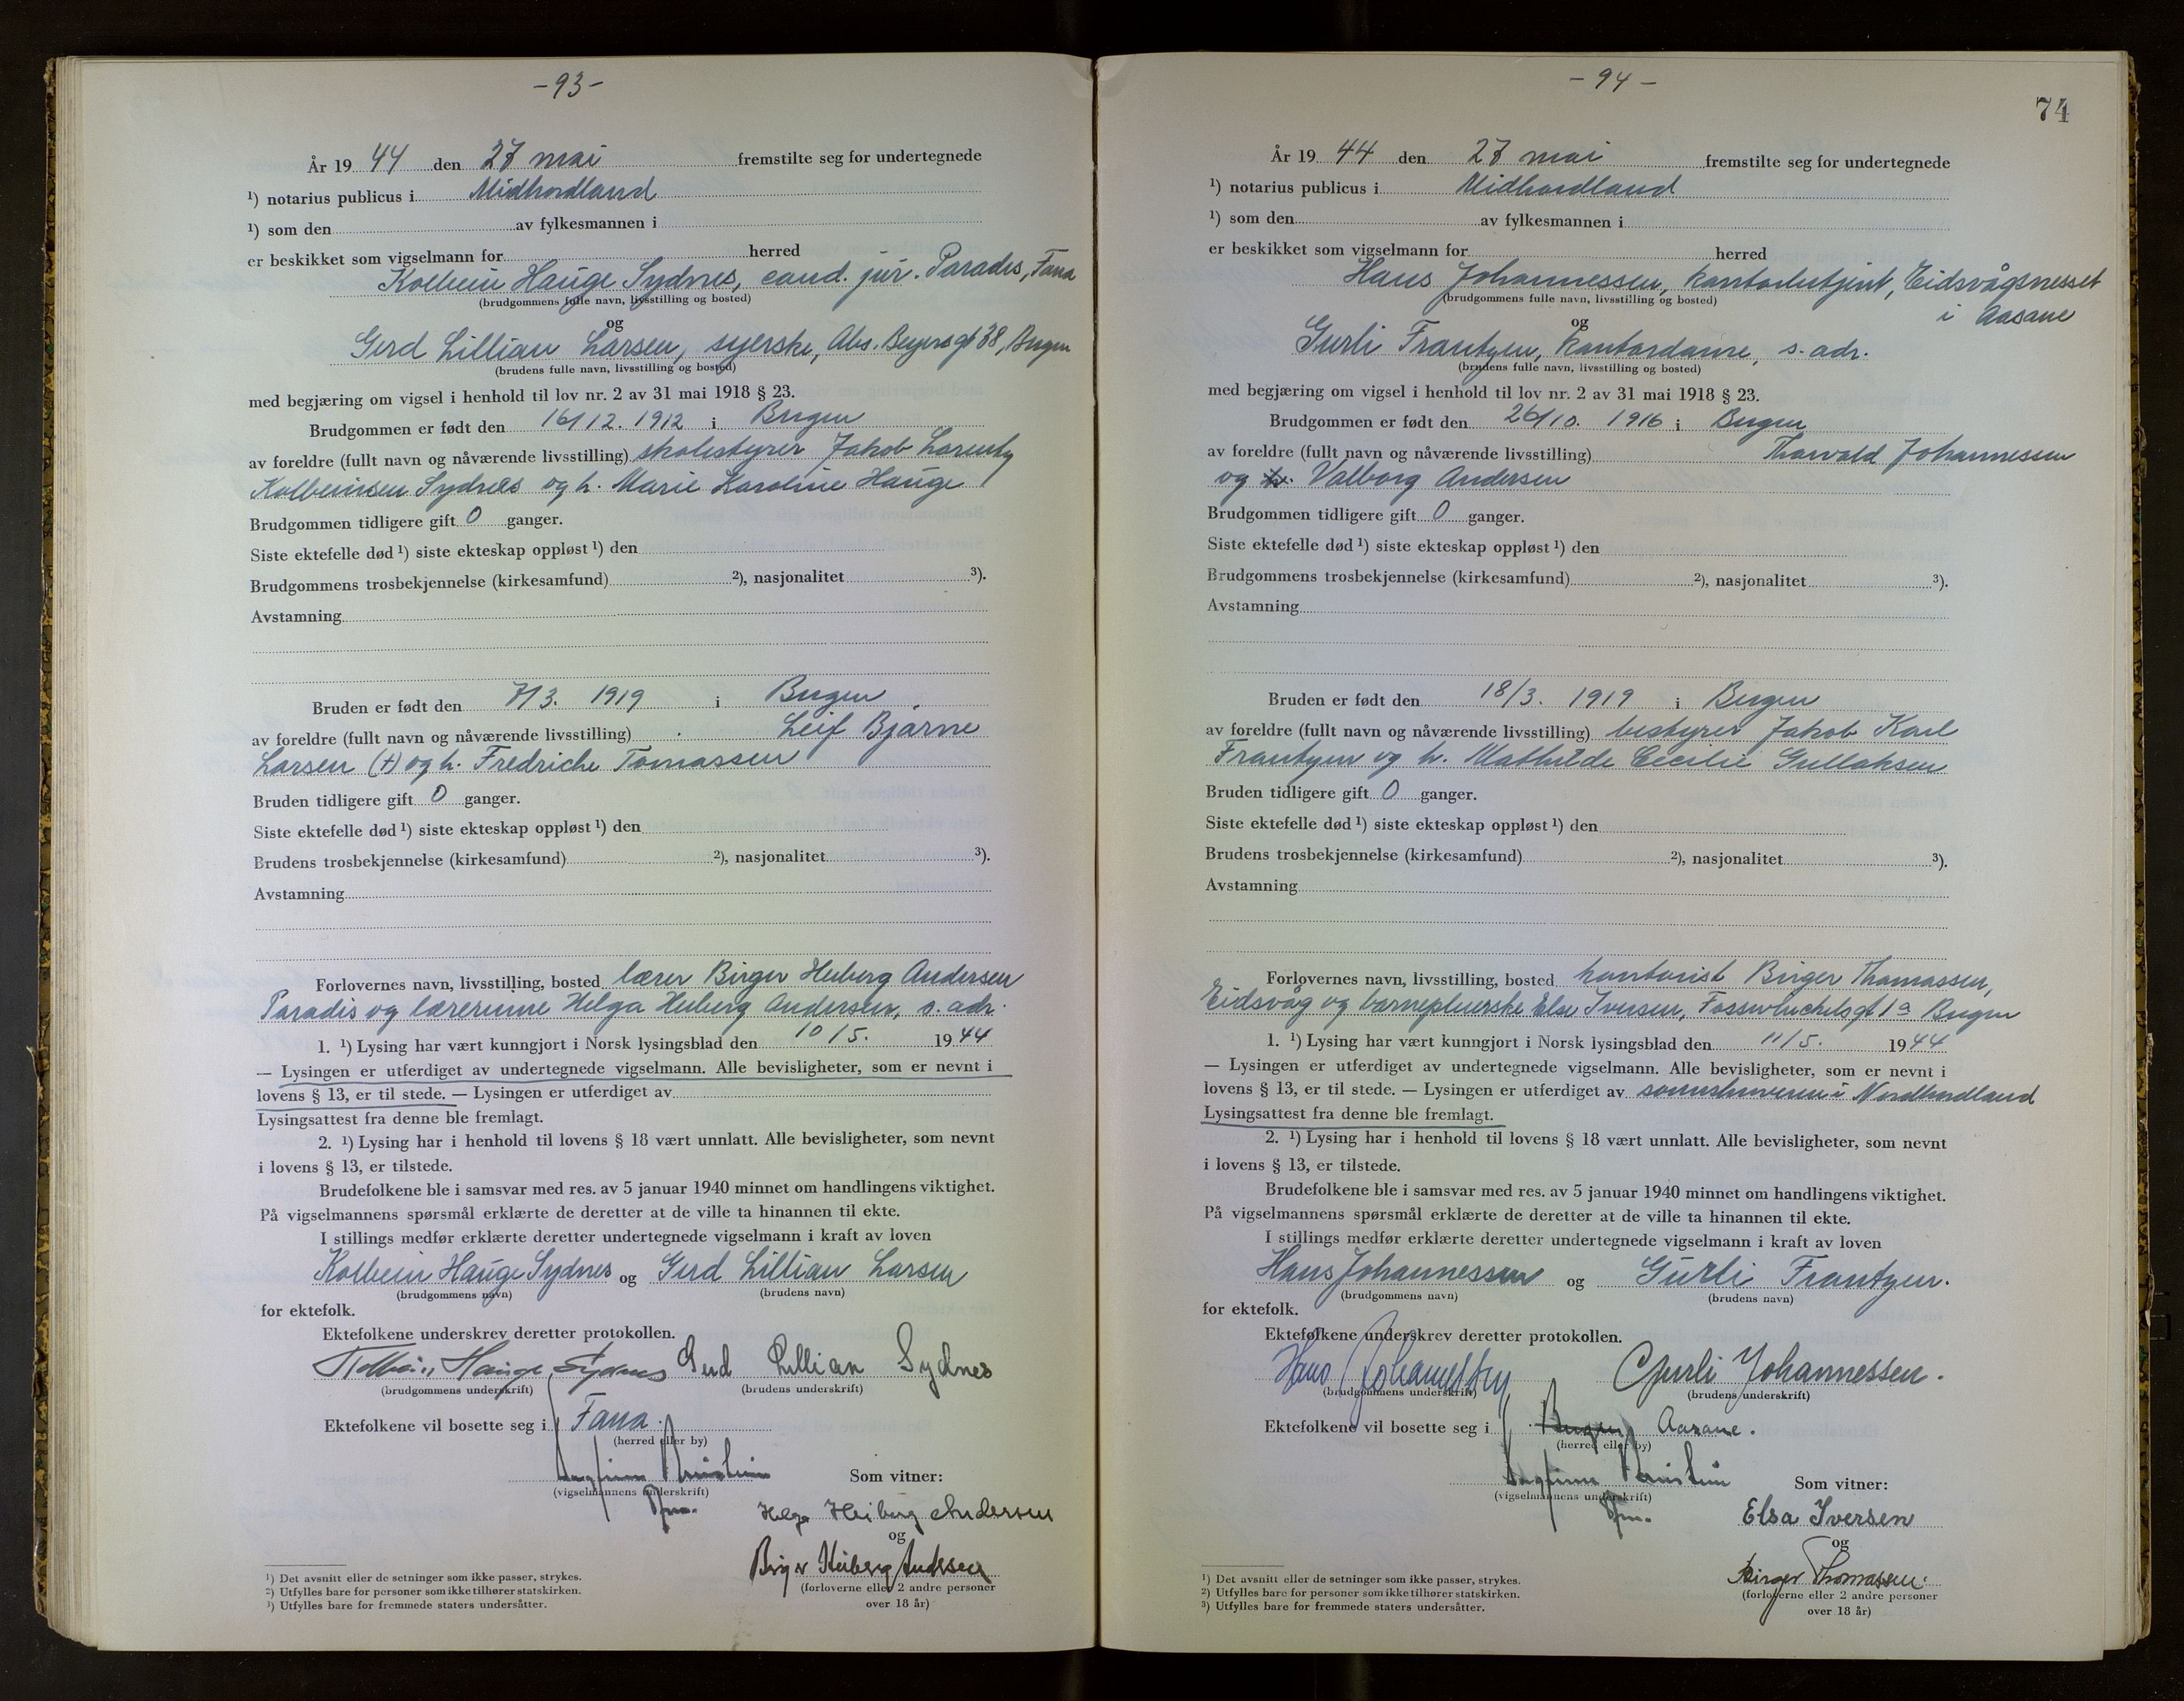 -93-
År 19 44 den 27 mai fremstilte seg for undertegnede
¹) notarius publicus i Midhordland
¹) som den av fylkesmannen i
er beskikket som vigselmann for herred
Kolbein Hauge Sydnes, cand. jur. Paradis, Fana
(brudgommens fulle navn, livsstilling og bosted)
og
Gerd Lillian Larsen, syerske, Abs. Beyersgt 38, Bergen
(brudens fulle navn, livsstilling og bosted)
med begjæring om vigsel i henhold til lov nr. 2 av 31 mai 1918 § 23.
Brudgommen er født den 16/12. 1912 i Bergen
av foreldre (fullt navn og nåværende livsstilling) skolestyrer Jakob Lorentz
Kolbeinsen Sydnes og h. Marie Karoline Hauge
Brudgommen tidligere gift 0 ganger.
Siste ektefelle død ¹) siste ekteskap oppløst ¹) den
Brudgommens trosbekjennelse (kirkesamfund) ²), nasjonalitet ³).
Avstamning
Bruden er født den 7/3. 1919 i Bergen
av foreldre (fullt navn og nåværende livsstilling) Leif Bjarne
Larsen (+) og h. Fredriche Tomassen
Bruden tidligere gift 0 ganger.
Siste ektefelle død ¹) siste ekteskap oppløst ¹) den
Brudens trosbekjennelse (kirkesamfund) ²), nasjonalitet ³).
Avstamning
Forlovernes navn, livsstilling, bosted lærer Birger Heiberg Andersen
Paradis og lærerinne Helga Heiberg Andersen, s. adr.
1. ¹) Lysing har vært kunngjort i Norsk lysingsblad den 10/5. 1944
— Lysingen er utferdiget av undertegnede vigselmann. Alle bevisligheter, som er nevnt i
lovens § 13, er til stede. — Lysingen er utferdiget av
Lysingsattest fra denne ble fremlagt.
2. ¹) Lysing har i henhold til lovens § 18 vært unnlatt. Alle bevisligheter, som nevnt
i lovens § 13, er tilstede.
Brudefolkene ble i samsvar med res. av 5 januar 1940 minnet om handlingens viktighet.
På vigselmannens spørsmål erklærte de deretter at de ville ta hinannen til ekte.
I stillings medfør erklærte deretter undertegnede vigselmann i kraft av loven
Kolbein Hauge Sydnes og Gerd Lillian Larsen
(brudgommens navn) (brudens navn)
for ektefolk.
Ektefolkene underskrev deretter protokollen.
Kolbein Hauge Sydnes Gerd Lillian Sydnes
(brudgommens underskrift) (brudens underskrift)
Ektefolkene vil bosette seg i Fana.
(herred eller by)
Som vitner:
(vigselmannens underskrift)
Helga Heiberg Andersen
og
Birger Heiberg Andersen
(forloverne eller 2 andre personer
over 18 år)
¹) Det avsnitt eller de setninger som ikke passer, strykes.
²) Utfylles bare for personer som ikke tilhører statskirken.
³) Utfylles bare for fremmede staters undersåtter.
-94-
74
År 19 44 den 27 mai fremstilte seg for undertegnede
¹) notarius publicus i Midhordland
¹) som den av fylkesmannen i
er beskikket som vigselmann for herred
Hans Johannessen, kontorbetjent, Eidsvågsnesset
(brudgommens fulle navn, livsstilling og bosted)
i Aasane
og
Gurli Frantzen, kontordame, s. adr.
(brudens fulle navn, livsstilling og bosted)
med begjæring om vigsel i henhold til lov nr. 2 av 31 mai 1918 § 23.
Brudgommen er født den 26/10. 1916 i Bergen
av foreldre (fullt navn og nåværende livsstilling) Thorvald Johannessen
og h. Valborg Andersen
Brudgommen tidligere gift 0 ganger.
Siste ektefelle død ¹) siste ekteskap oppløst ¹) den
Brudgommens trosbekjennelse (kirkesamfund) ²), nasjonalitet ³).
Avstamning
Bruden er født den 18/3. 1919 i Bergen
av foreldre (fullt navn og nåværende livsstilling) bestyrer Jakob Karl
Frantzen og h. Mathilde Cecilie Gullaksen
Bruden tidligere gift 0 ganger.
Siste ektefelle død ¹) siste ekteskap oppløst ¹) den
Brudens trosbekjennelse (kirkesamfund) ²), nasjonalitet ³).
Avstamning
Forlovernes navn, livsstilling, bosted kontorist Birger Thomassen,
Eidsvåg og barnepleierske Else Iversen, 1a Bergen
1. ¹) Lysing har vært kunngjort i Norsk lysingsblad den 11/5. 1944
— Lysingen er utferdiget av undertegnede vigselmann. Alle bevisligheter, som er nevnt i
lovens § 13, er til stede. — Lysingen er utferdiget av sorenskriveren i Nordhordland
Lysingsattest fra denne ble fremlagt.
2. ¹) Lysing har i henhold til lovens § 18 vært unnlatt. Alle bevisligheter, som nevnt
i lovens § 13, er tilstede.
Brudefolkene ble i samsvar med res. av 5 januar 1940 minnet om handlingens viktighet.
På vigselmannens spørsmål erklærte de deretter at de ville ta hinannen til ekte.
I stillings medfør erklærte deretter undertegnede vigselmann i kraft av loven
Hans Johannessen og Gurli Frantzen.
(brudgommens navn) (brudens navn)
for ektefolk.
Ektefolkene underskrev deretter protokollen.
Hans Johannessen Gurli Johannessen.
(brudgommens underskrift) (brudens underskrift)
Ektefolkene vil bosette seg i Bergen Aasane.
(herred eller by)
Som vitner:
(vigselmannens underskrift)
Elsa Iversen
og
Birger Thomassen.
(forloverne eller 2 andre personer
over 18 år)
¹) Det avsnitt eller de setninger som ikke passer, strykes.
²) Utfylles bare for personer som ikke tilhører statskirken.
³) Utfylles bare for fremmede staters undersåtter.